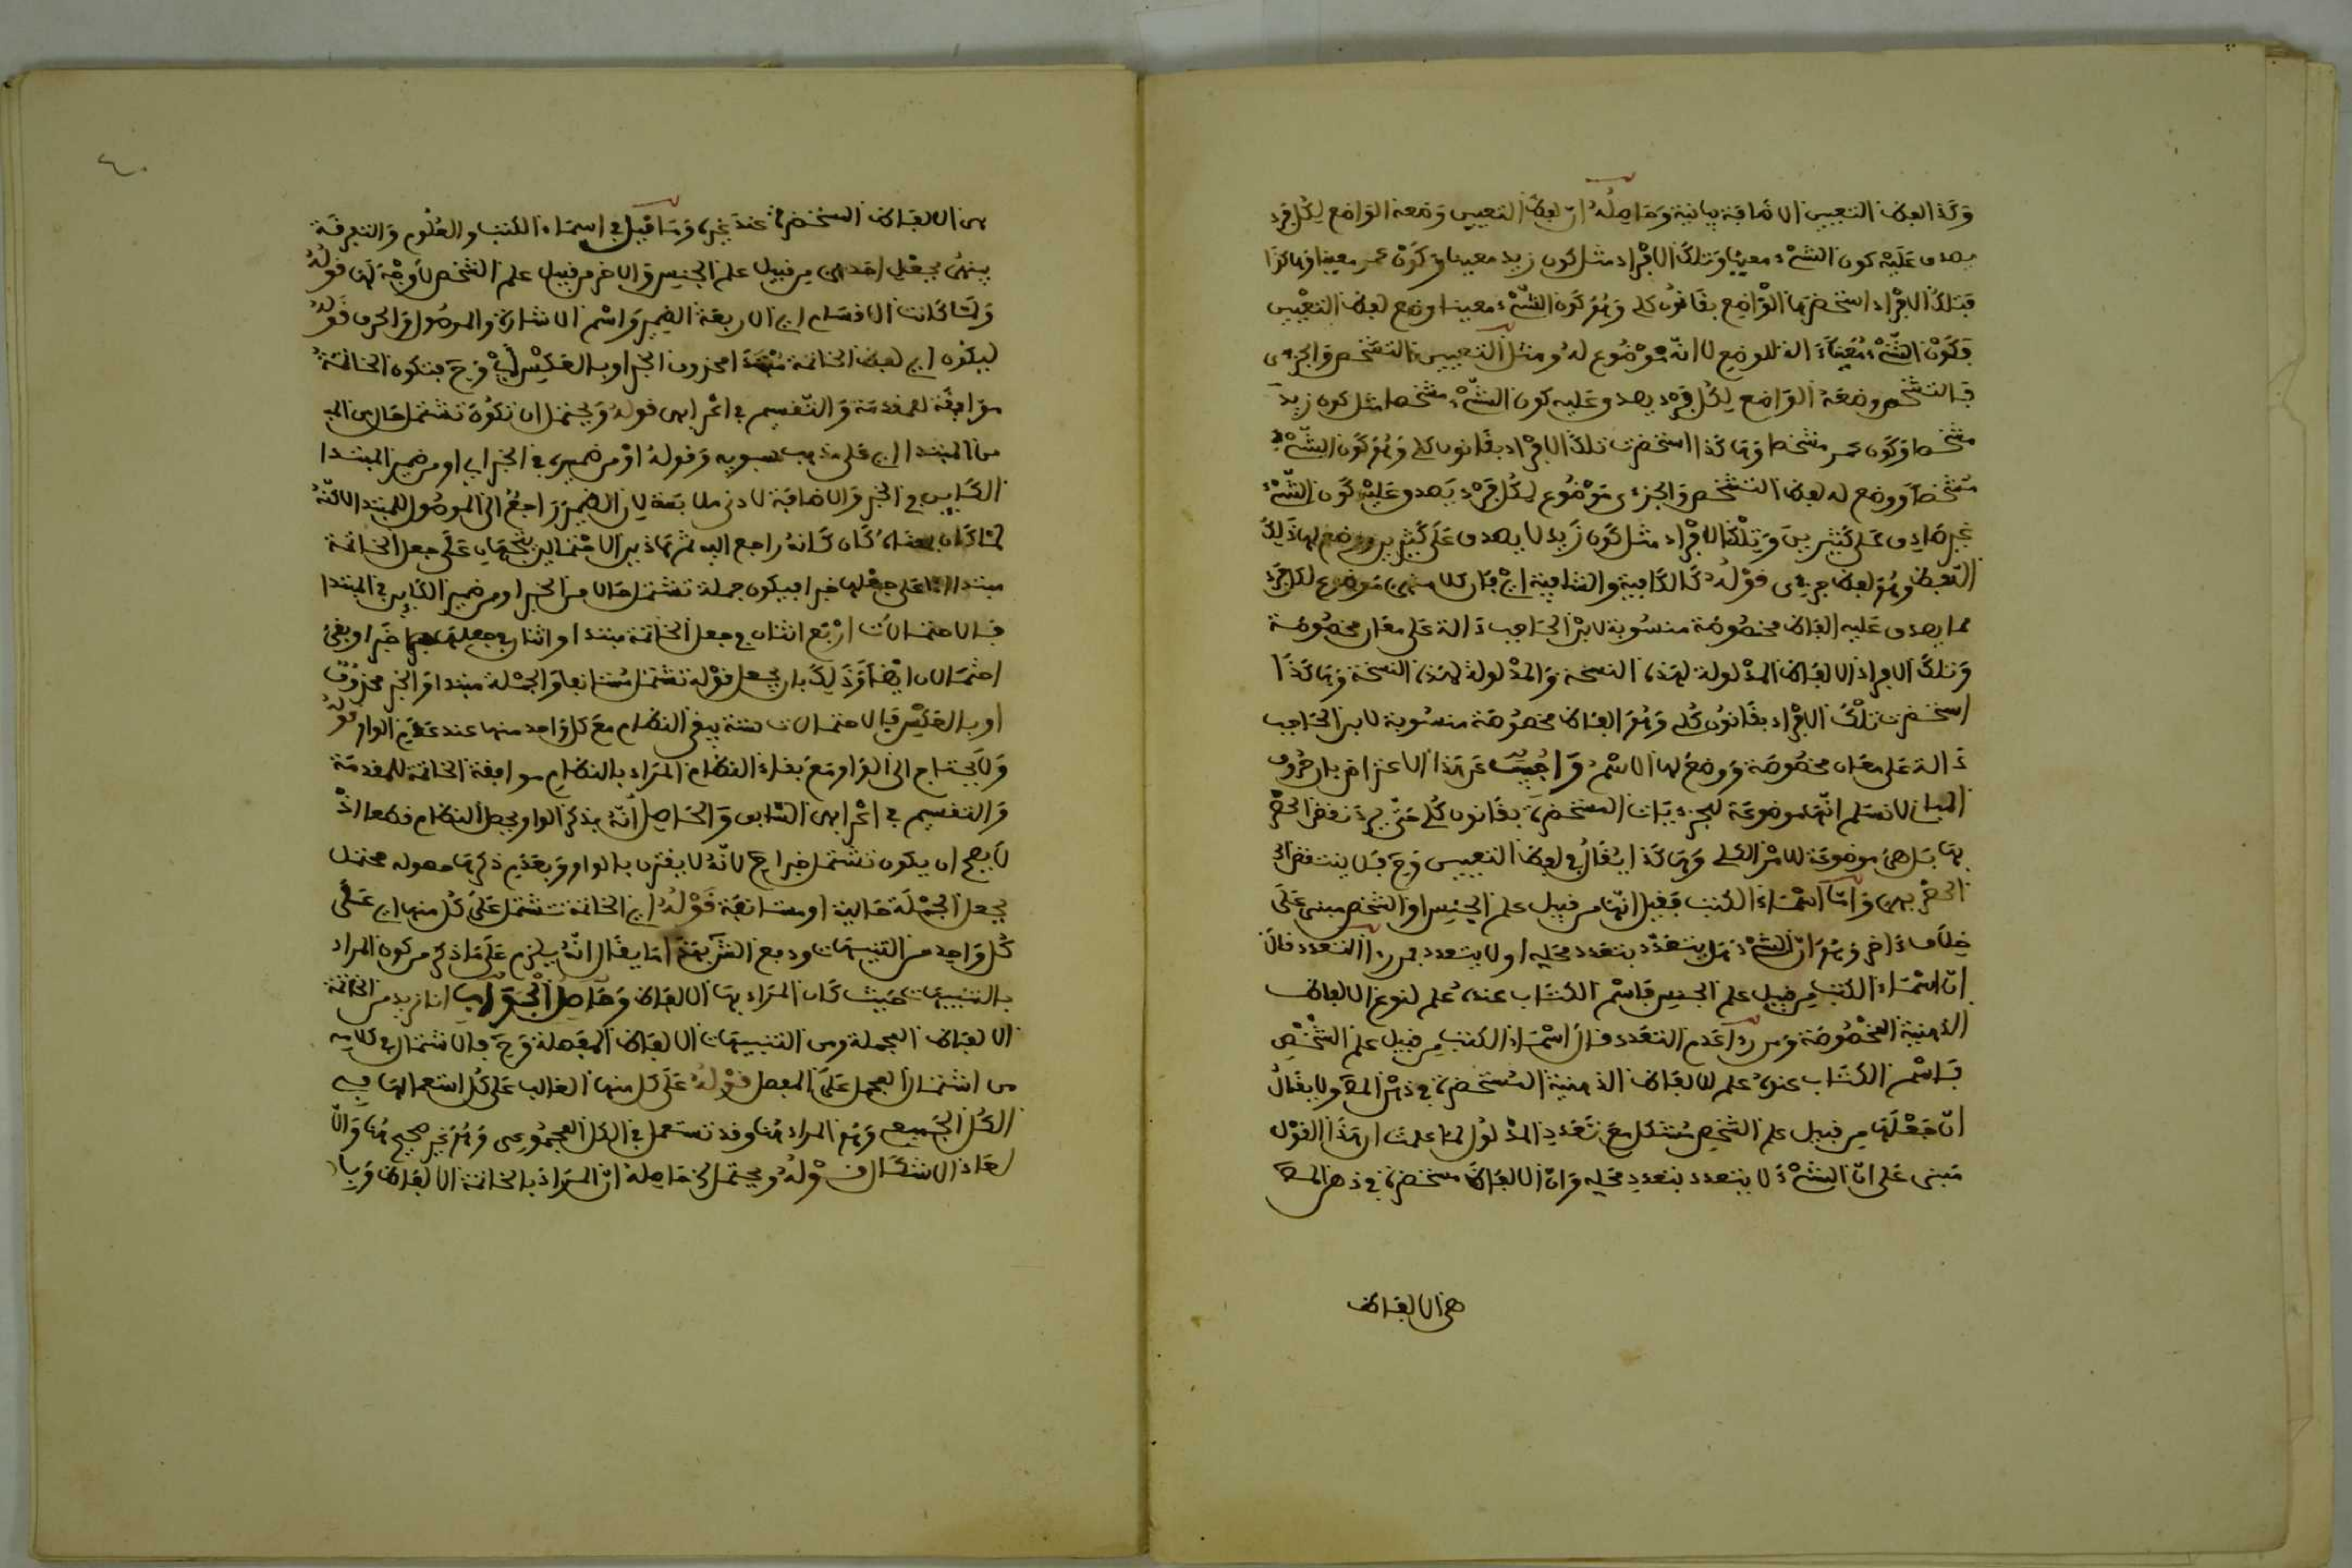 وكذا لفظ التعيين الاضافة بيانية وحاصله ان لفظ التعيين وضعه الواضع لكل فرد
يصدق عليه كون الشيء معينا وتلك الافراد مثل كون زيد معينا وكون عمر معينا وهاكذا
فتلك الافراد استحضرها الواضع بقانون كلي وهو كون الشيء معينا ووضع لفظ التعيين
فكون الشيء معينا ءالة للوضع لا انه موضوع له ومثل التعيين التشخص والجزءي
فالتشخص وضعه الواضع لكل فرد يصدق عليه كون الشيء مشخصا مثل كون زيد
مشخصا وكون عمر مشخصا وهاكذا استحضرت تلك الافراد بقانون كلي وهو كون الشيء
مشخصا ووضع له لفظ التشخص والجزءي موضوع لكل فرد يصدق عليه كون الشيء
غير صادق على كثيرين وتلك الافراد مثل كون زيد لا يصدق على كثيرين ووضع لها ذلك
اللفظ وهو لفظ جزءي قوله كالكافية والشافية اي فان كلا منهما موضوع لكل فرد
مما يصدق عليه الفاظ مخصوصة منسوبة لابن الحاجب دالة على معان مخصوصة
وتلك الافراد الالفاظ المدلولة لهذه النسخة والمدلولة لهذه النسخة وهاكذا
استحضرت تلك الافراد بقانون كلي وهو الفاظ مخصوصة منسوبة لابن الحاجب
دالة على معان مخصوصة ووضع لها الاسم واجيب عن هذا الاعتراض بان حروف
المباني لا نسلم انها موضوعة للجزءيات المستحضرة بقانون كلي حتى يرد نقض الحصر
بها بل هي موضوعة للامر الكلي وهاكذا يقال في لفظ التعيين وح فلا ينتقض
الحصر بهن واما اسماء الكتب فقيل انها من قبيل علم الجنس او الشخص مبني على
خلاف ءاخر وهو ان الشيء هل يتعدد بتعدد محله او لا يتعدد فمن رءا التعدد قال
ان اسماء الكتب من قبيل علم الجنس فاسم الكتاب عنده علم لنوع الالفاظ
الذهنية المخصوصة ومن رءا عدم التعدد قال اسماء الكتب من قبيل علم الشخص
فاسم الكتاب عنده علم للالفاظ الذهنية المستحضرة في ذهن المص ولا يقال
ان جعلها من قبيل علم الشخص مشكل مع تعدد المدلول لما علمت ان هذا القول
مبني على ان الشيء لا يتعدد بتعدد محله وان الالفاظ مستحضرة في ذهن المص
هي الالفاظ
٤٠
هي الالفاظ المستحضرة عند غيره وما قيل في اسماء الكتب والعلوم والتفرقة
بينهما بجعل احدهما من قبيل علم الجنس والاخر من قبيل علم الشخص لا وجه لها قوله
ولما كانت الاقسام اي الاربعة الضمير واسم الاشارة والموصول والحرف قوله
ليكون اي لفظ الخاتمة مبتدأ محذوف الخبر او بالعكس اي وح فتكون الخاتمة
موافقة للمقدمة والتقسيم في اعرابهما قوله ويحتمل ان تكون تشتمل حال من
من المبتدا اي على مذهب سبويه وقوله او من ضميره في الخبر اي او من ضمير المبتدا
الكاين في الخبر والاضافة لادنى ملابسة لان الضمير راجع الى الموصول للمبتدا لاكنه
لما كان كان كانه راجع اليه ثم هاذين الاحتمالين يتجهان على جعل الخاتمة
مبتدا اما على جعلها خبرا فيكون جملة تشتمل حالا من الخبر او من ضمير الكاين في المبتدا
فالاحتمالات اربع اثنان في جعل الخاتمة مبتدا واثنان في جعلها خبرا وبقي
احتمالان ايضا وذلك بان يجعل قوله تشتمل مستانفا والجملة مبتدا والخبر محذوف
او بالعكس فالاحتمالات ستة يبقى النظام مع كل واحد منها عند عدم الواو قوله
ولا يحتاج الى الواو مع بقاء النظام المراد بالنظام موافقة الخاتمة للمقدمة
والتقسيم في اعرابهما السابق والحاصل انه بذكر الواو يحصل النظام قطعا اذ
لا يصح ان يكون تشتمل خبرا ح لانه لا يقترن بالواو وبعدم ذكرها حصوله محتمل
بجعل الجملة حالية او مستانفة قوله اي الخاتمة تشتمل على كل منها اي على
كل واحد من التنبيهات ودفع الش بهذا ما يقال انه يلزم على ما ذكر من كون المراد
بالتنبيهات حيث كان المراد بها الالفاظ وحاصل الجواب انا نريد من الخاتمة
الالفاظ المجملة ومن التنبيهات الالفاظ المفصلة وح فالاشتمال في كلامه
من اشتمال المجمل على المفصل قوله على كل منها الغالب على كل استعمالها في
الكل الجميعي وهو المراد هنا وقد تستعمل في الكل المجموعي وهو غير صحيح هنا والا
لعاد الاشكال قوله ويحتمل الخ حاصله ان المراد بالخاتمة الالفاظ